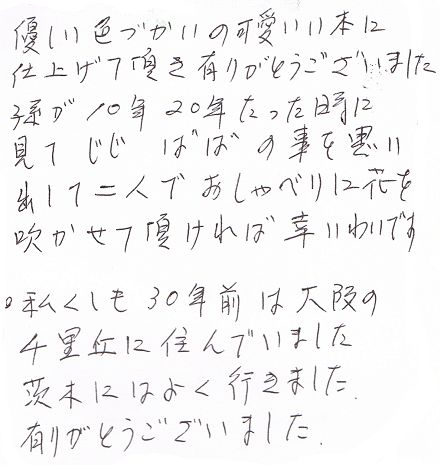 優しい色づかいの可愛いい本に
仕上げて頂き有りがとうございました
孫が10年20年たった時に
見て じじ ばばの事を思い
出して二人でおしゃべりに花を
吹かせて頂ければ幸いわいです
。私くしも30年前は大阪の
千里丘に住んでいました
茨木にはよく行きました.
有りがとうございました.